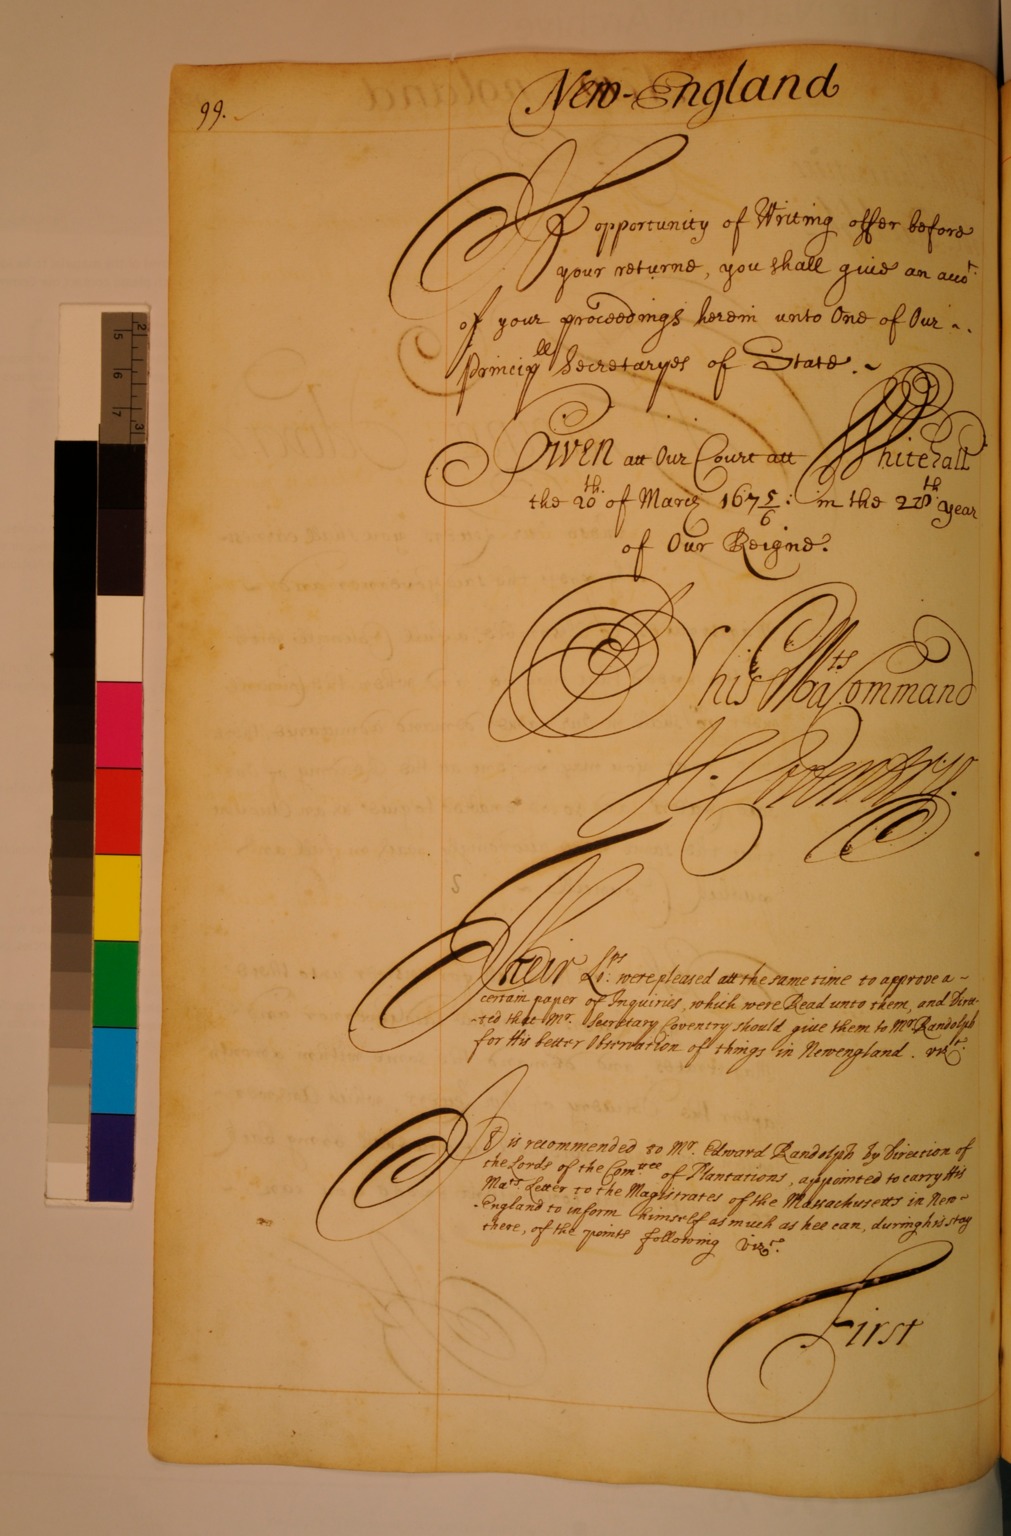 99.
New-England
If opportunity of Writing offer before
your returne, you shall give an acco^t.
of your proceedings herein unto One of Our ~..
Princip^ll Secretaryes of State. ~
Given att Our Court att Whitehall
the 20^th. of March 167 5/6 : in the 28^th. year
of Our Reigne.
By his Ma^ts Command
H. Coventry.
Their Lo^ps: were pleased att the same time to approve a ~
certain paper of Inquiries, which were Read unto them, and Direc-
-ted that M^r. Secretary Coventry should give them to M^r. Randolph
for His better Observation of things in Newengland. viz^t.
It is recommended to M^r. Edward Randolph by Direction of
the Lords of the Com^tee of Plantations, appointed to carry His
Ma^ts Letter to the Magistrates of the Massachusetts in New~
-England to inform himself as much as hee can, during his stay
there, of the points following viz^t.
First